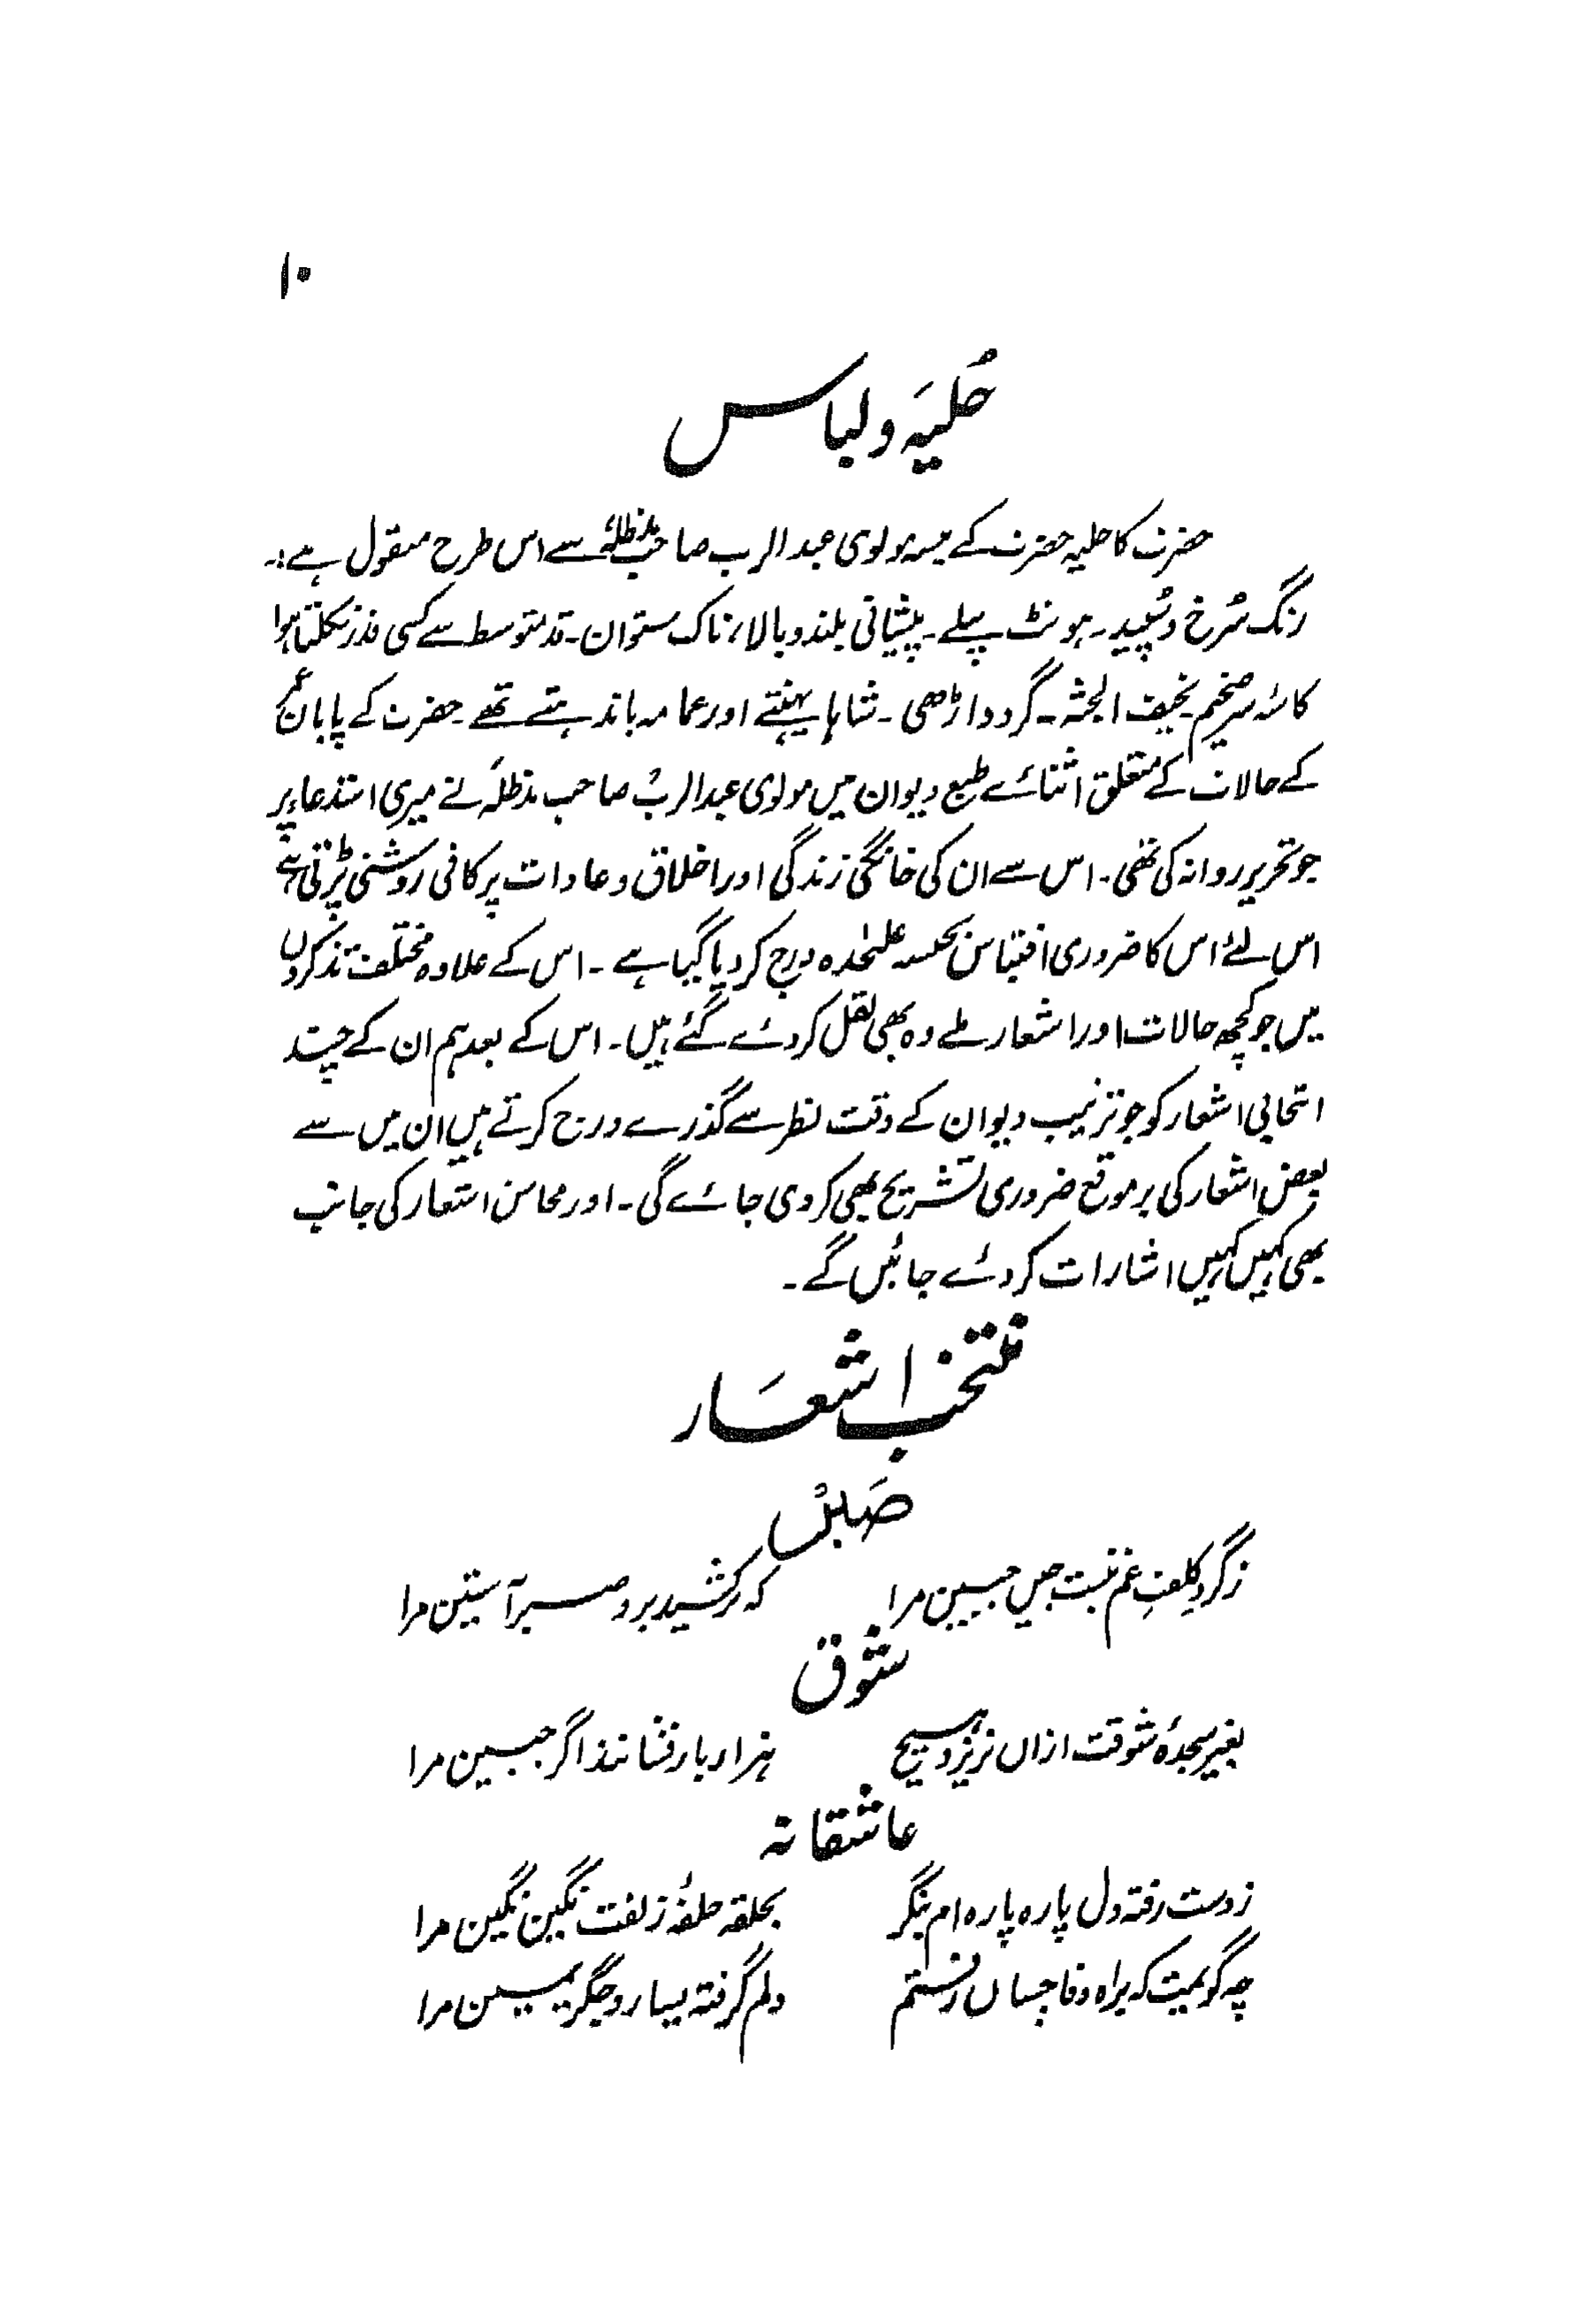 ۱۰
حُلیَہ و لباس
حضرت کا حلیہ حضرت کے میسہ مولوی عبد الرب صاحب مدظلہٗ سے اس طرح منقول ہے :۔
رنگ سُرخ و سُپید۔ ہونٹ پتلے۔ پیشانی بلند و بالا، ناک ستواں۔ قد متوسط سے کسی قدر نکلتا ہوا
کاسۂ سر ضخیم نحیف الجثہ۔ گرد داڑھی۔ شاہا پہنتے اور عمامہ باندہتے تھے۔ حضرت کے پایان عمر
کے حالات کے متعلق اثنائے طبع دیوان میں مولوی عبدالرب صاحب مدظلہٗ نے میری استدعاء پر
جو تحریر روانہ کی تھی۔ اس سے ان کی خانگی زندگی اور اخلاق و عادات پر کافی روشنی پڑتی ہے
اس لئے اس کا ضروری اقتباس بجنسہ علیٰحدہ درج کر دیا گیا ہے۔ اس کے علاوہ مختلف تذکروں
میں جو کچھ حالات اور اشعار ملے وہ بھی نقل کر دئے گئے ہیں۔ اس کے بعد ہم ان کے چند
انتخابی اشعار کو جو ترتیب دیوان کے وقت نظر سے گذرے درج کرتے ہیں ان میں سے
بعض اشعار کی بر موقع ضروری تشریح بھی کر دی جائے گی۔ اور محاسن اشعار کی جانب
بھی کہیں کہیں اشارات کر دئے جائیں گے۔
منتخب اشعَار
صَبْر
ز گردِ کلفتِ غم نیست چیں جبین مرا کہ برکشید برو صبر آستین مرا
شوق
بغیر سجدۂ شوقت ازاں نریزد ہیچ ہزار بار فشانند اگر جبین مرا
عاشقانہ
ز دست رفتہ دل پارہ پارہ ام بنگر بحلقہ حلقۂ زلفت نگین نگین مرا
چہ گویمت کہ براہ وفا چساں رفتم دلم گرفتہ یسار و جگر یمین مرا